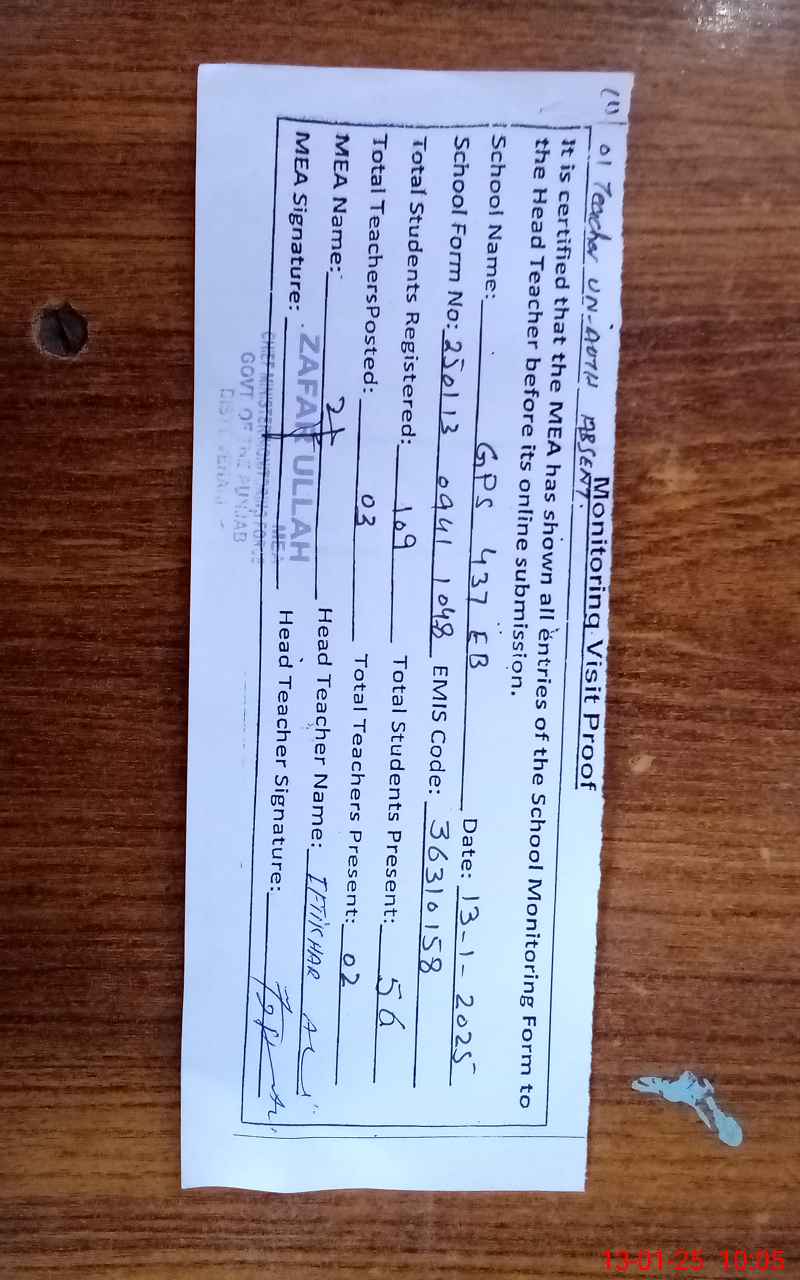 Monitoring Visit Proof
(1) 01 Teacher UN-AUTH ABSENT.
It is certified that the MEA has shown all entries of the School Monitoring Form to
the Head Teacher before its online submission.
School Name: GPS 437 EB Date: 13-1-2025
School Form No: 250113 0941 1048 EMIS Code: 36310158
Total Students Registered: 109 Total Students Present: 56
Total TeachersPosted: 03 Total Teachers Present: 02
MEA Name: Head Teacher Name: IFTIKHAR ALI
ZAFAR ULLAH
MEA Signature: Head Teacher Signature:
MEA
CHIEF MINISTER MONITORING FORCE
GOVT OF THE PUNJAB
13-01-25 10:05